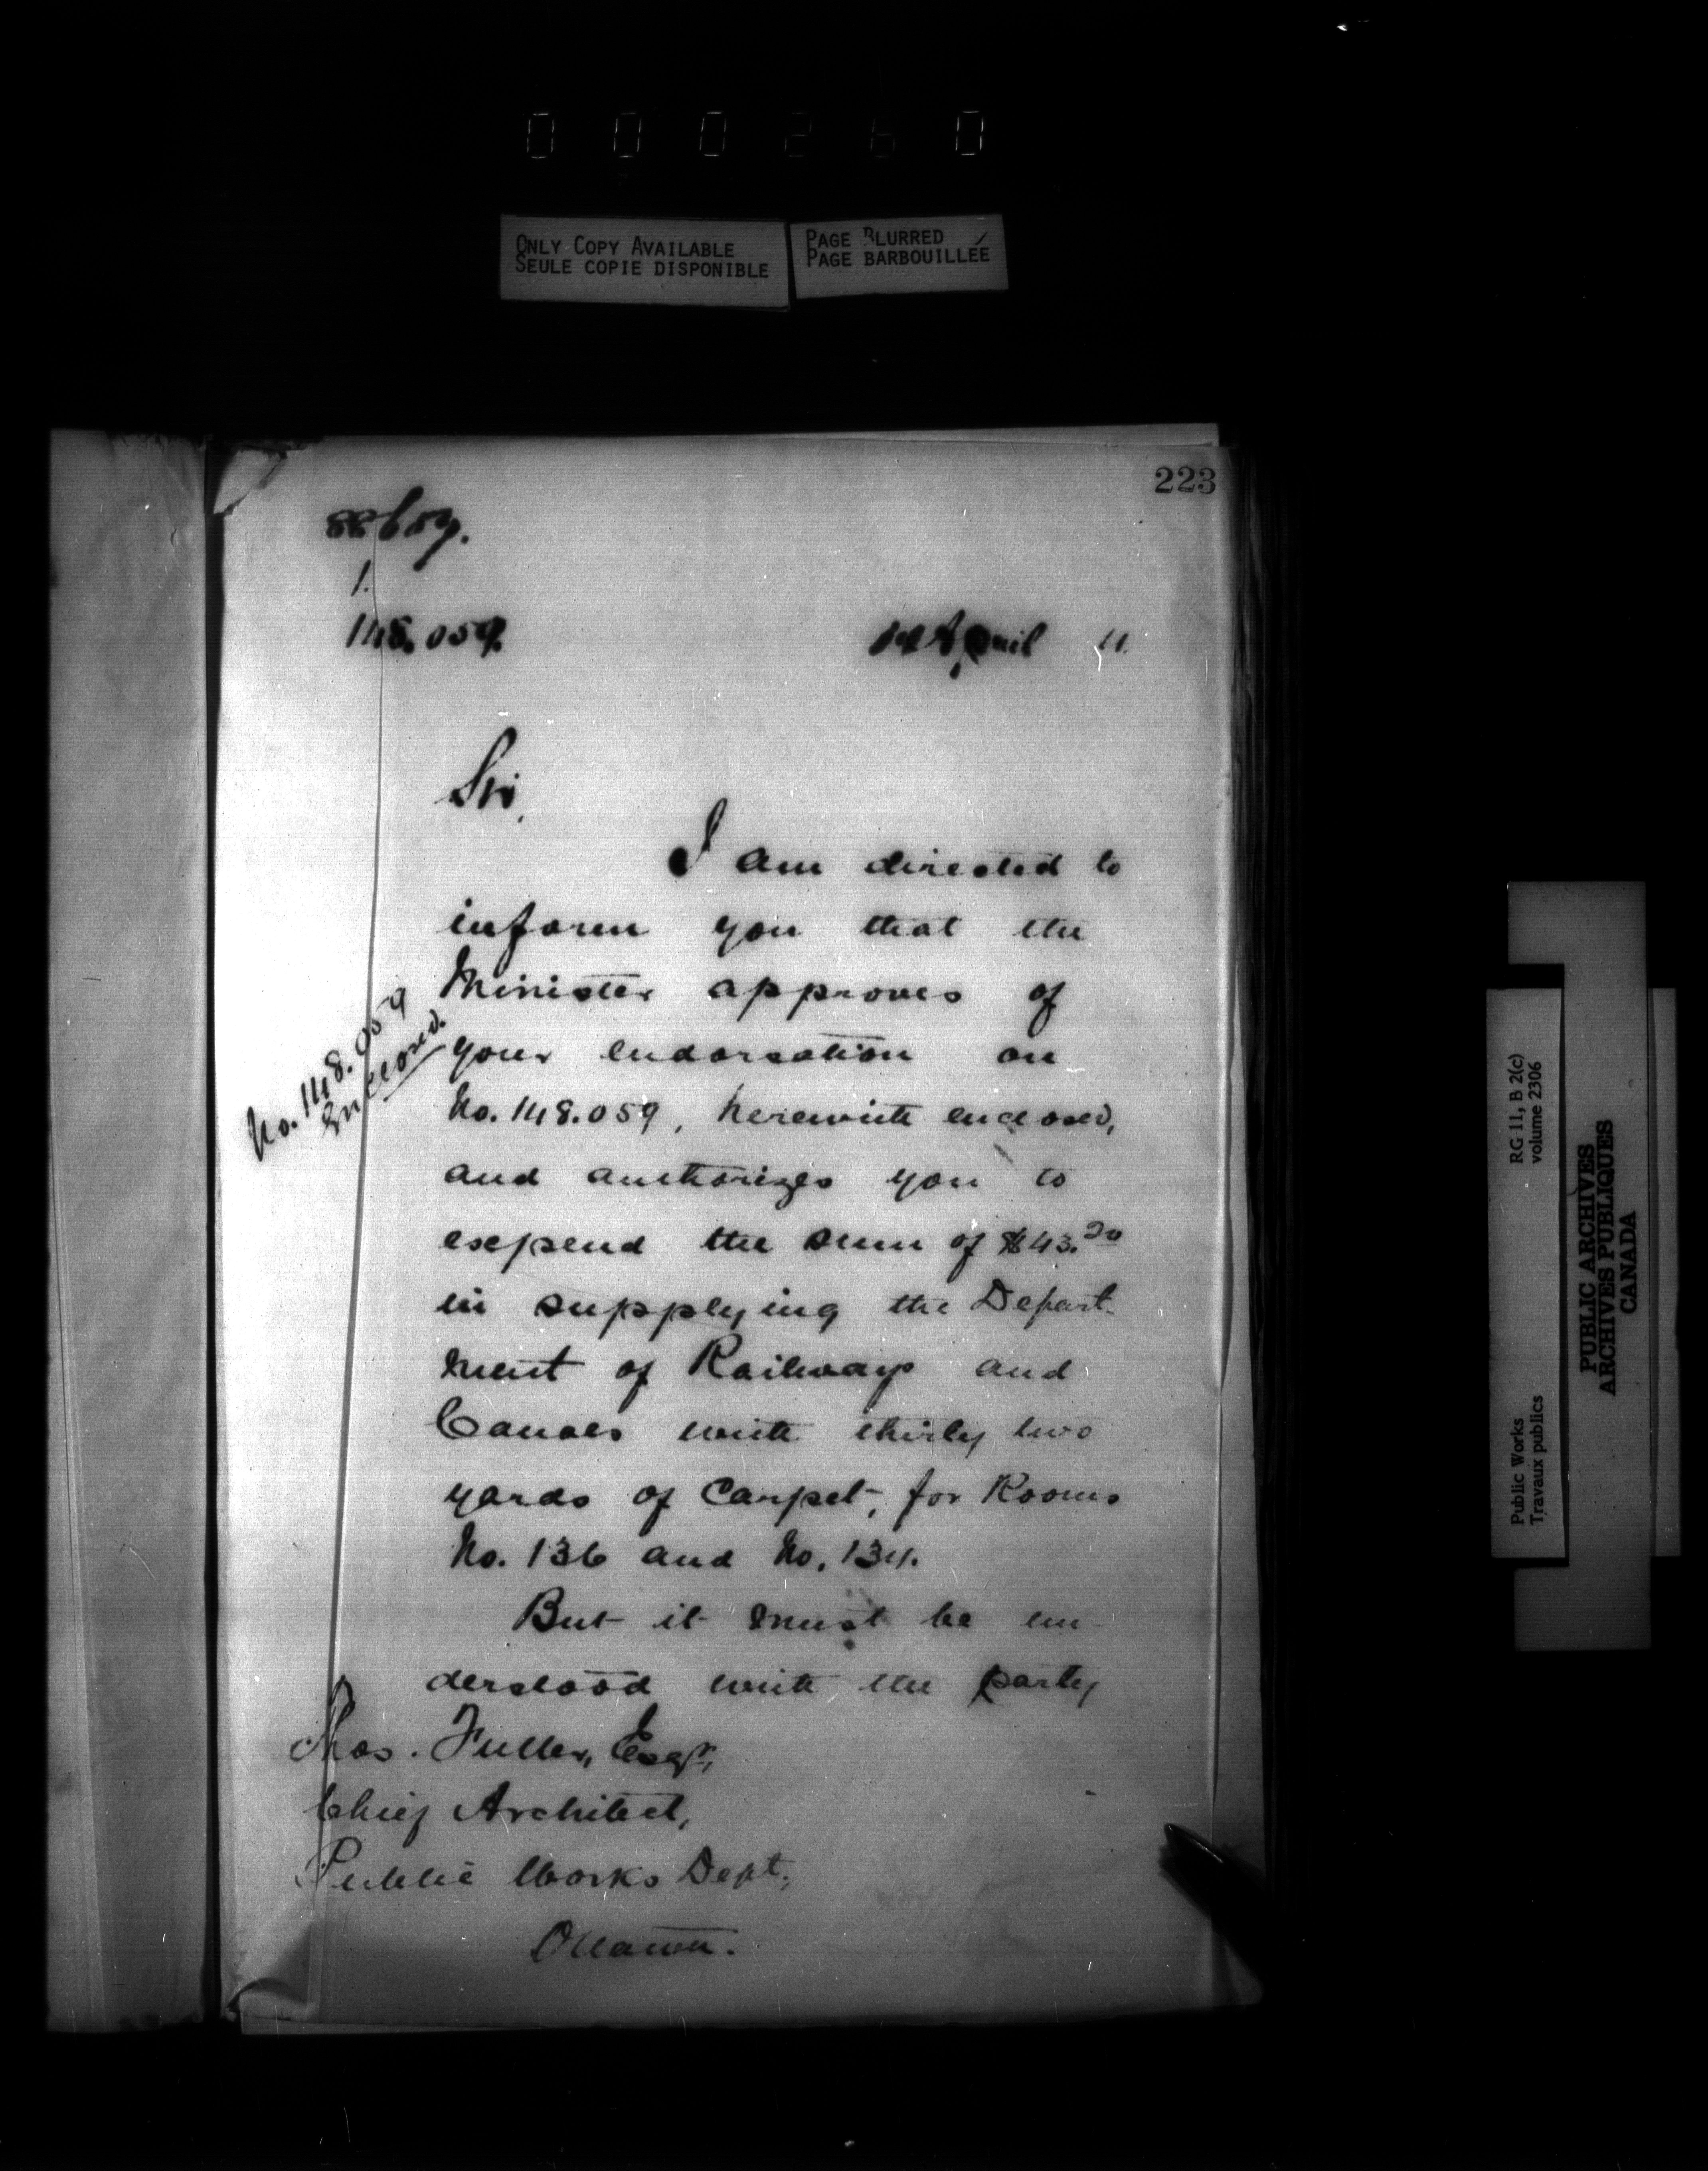 000260
ONLY COPY AVAILABLE
SEULE COPIE DISPONIBLE
PAGE BLURRED
PAGE BARBOUILLÉE
223
1.
148.059.
April
Sir,
I am directed to
inform you that the
Minister approves of
your endorsation on
No. 148.059, herewith enclosed,
and authorizes you to
expend the sum of $43.20
in supplying the Depart-
ment of Railways and
Canals with thirty two
yards of Carpet, for Rooms
No. 136 and No. 134.
But it must be un-
derstood with the party
No. 148.059
Enclosed.
Thos. Fuller, Esqr,
Chief Architect,
Public Works Dept.,
Ottawa.
Public Works
Travaux publics
RG 11, B 2(c)
volume 2306
PUBLIC ARCHIVES
ARCHIVES PUBLIQUES
CANADA